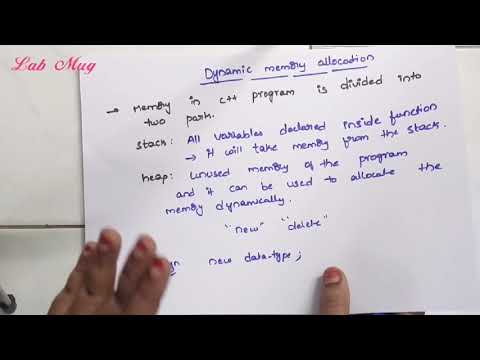 Lab Mug
Dynamic memory allocation
→ Memory in C++ program is divided into
two park.
stack: All variables declared inside function
→ it will take memory from the stack.
heap: Unused memory of the program
and it can be used to allocate the
memory dynamically.
"new" "delete"
new data-type;